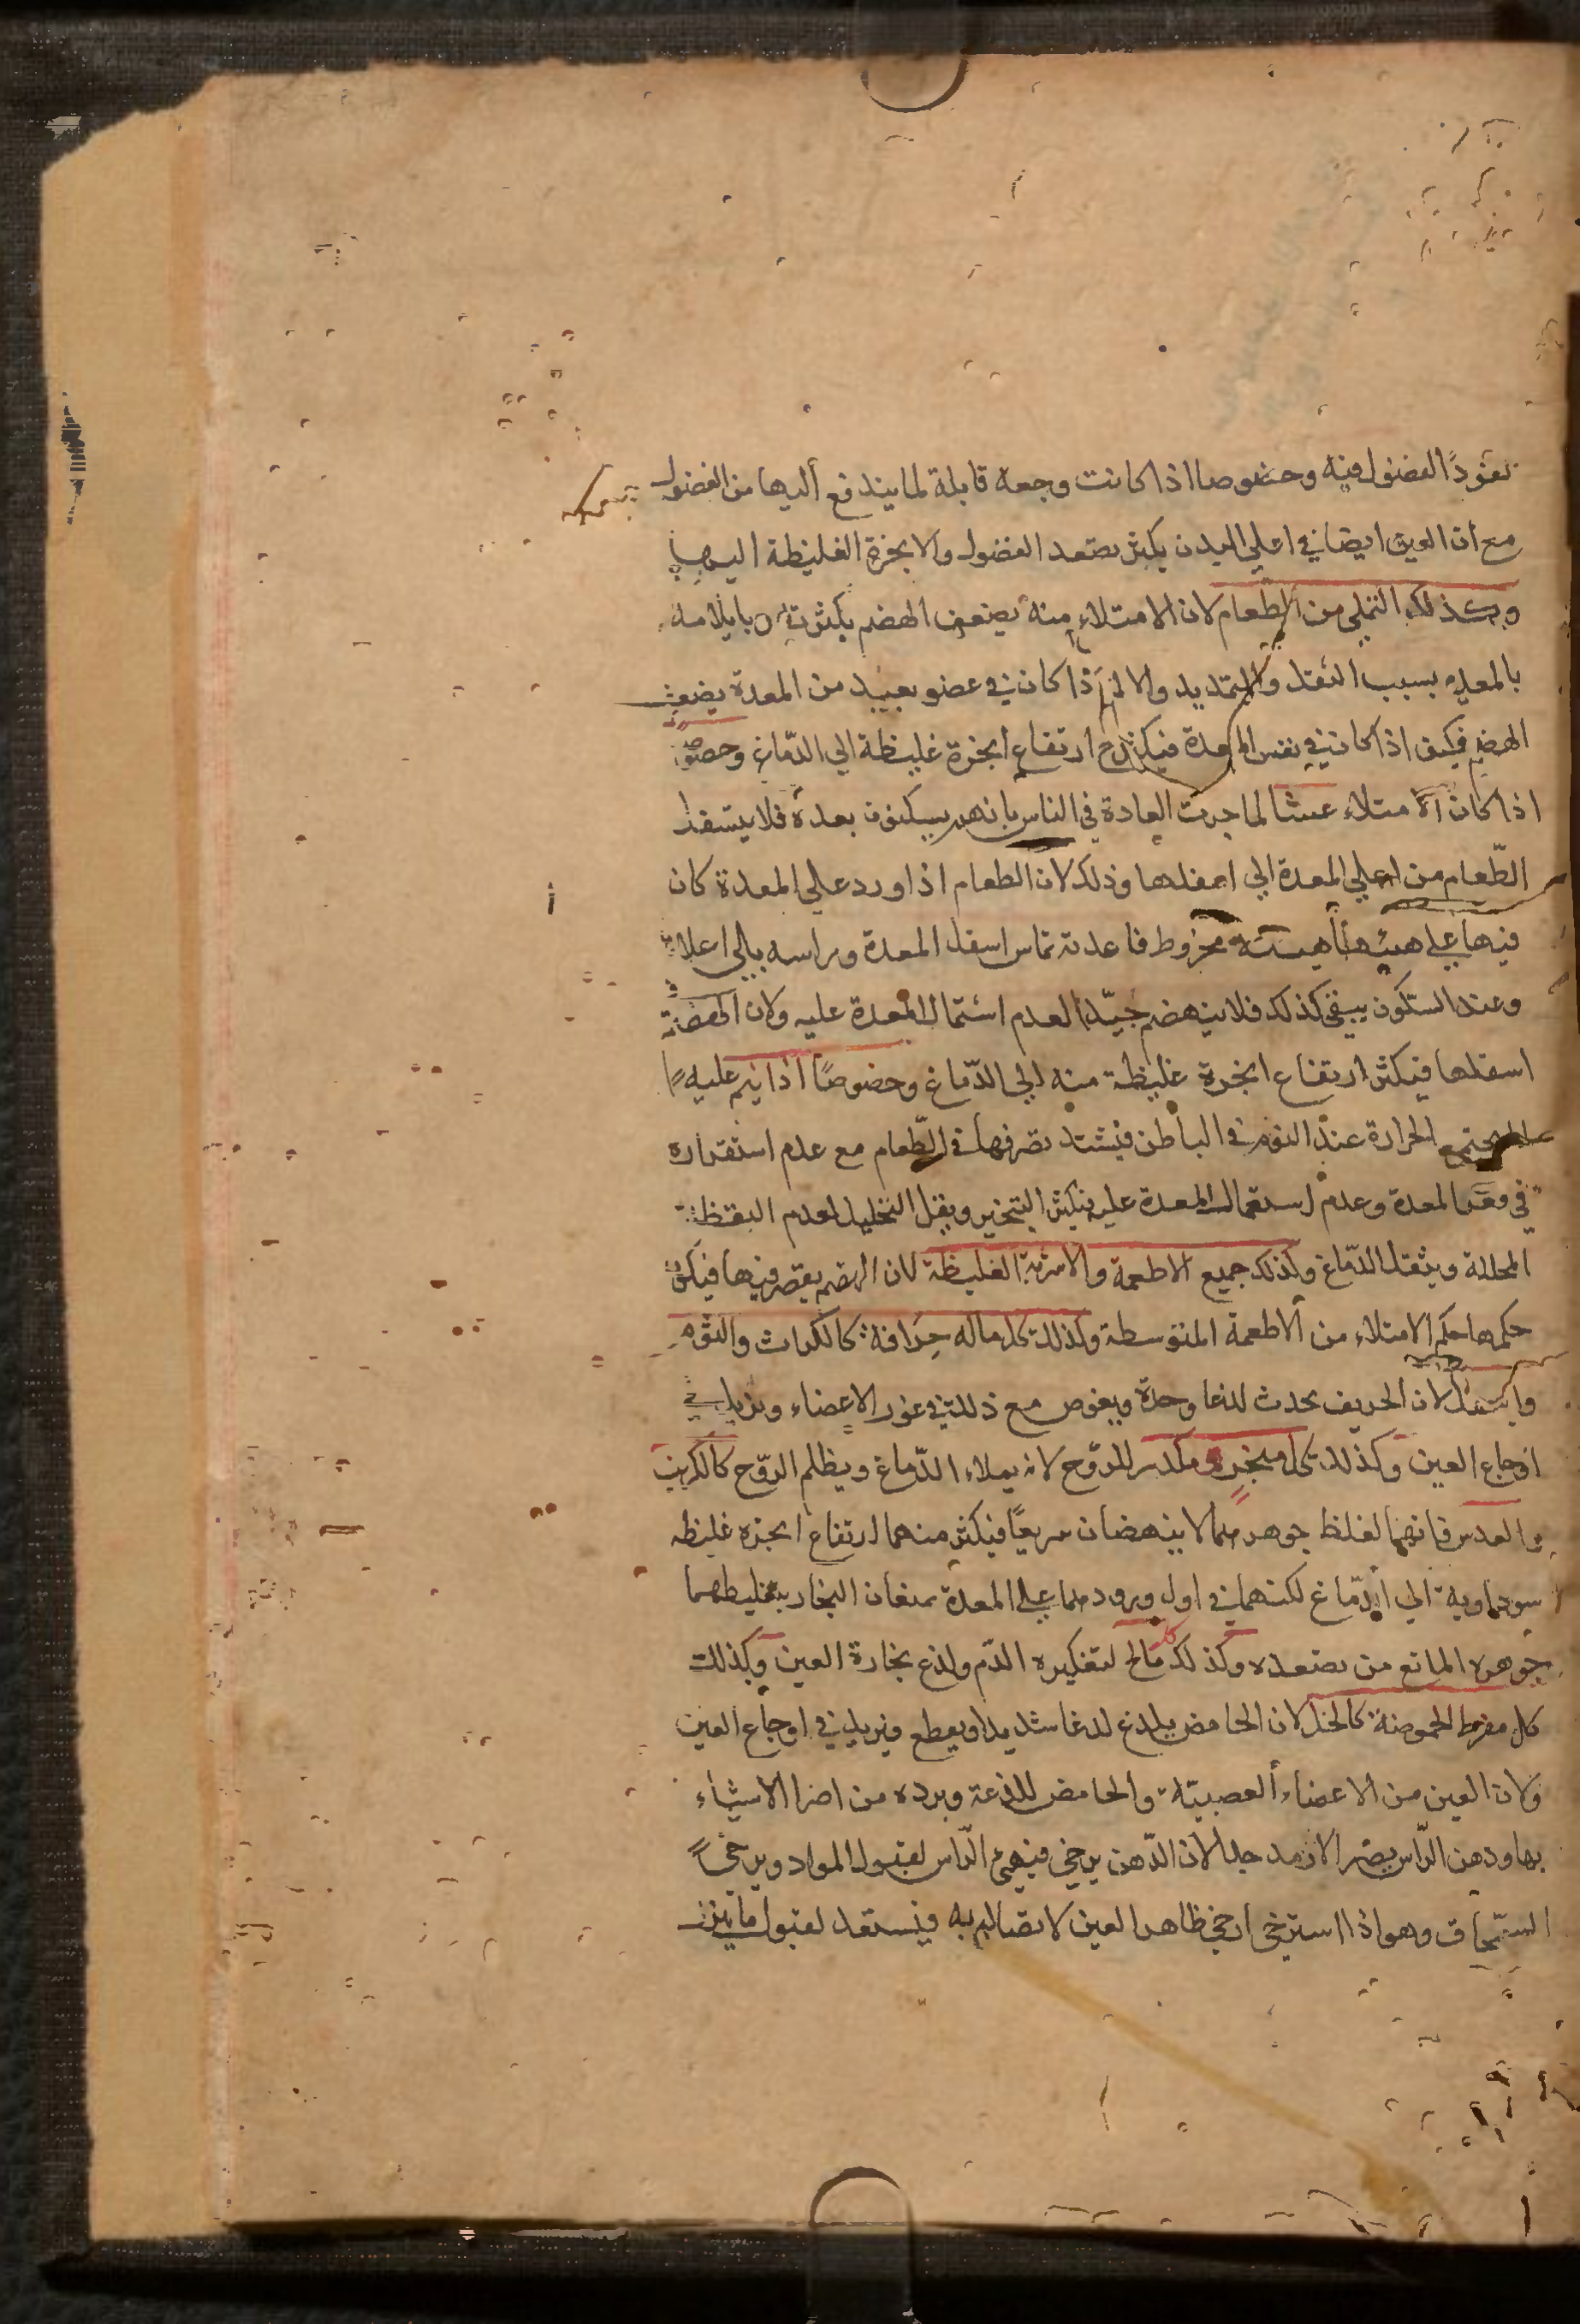 نفوذ الفضول فيه وخصوصا اذا كانت وجعة قابلة لما يندفع أليها من الفضول
مع ان العين ايضا في اعلي البدن يكثر تصعد الفضول والابخرة الغليظة اليها
وكذلك التملي من الطعام لان الامتلاء منه يضعف الهضم بكثرته وبايلامه
بالمعدة بسبب الثقل والتمديد والالم اذا كان في عضو بعيد من المعدة يضعف
الهضم فكيف اذا كان في نفس المعدة فيكثر ح ارتفاع ابخرة غليظة الي الدّماغ وخصوصا
اذا كان الامتلاء عشا لما جرت العادة في الناس بانهم يسكنون بعده فلا يتسفل
الطّعام من اعلي المعدة الي اسفلها وذلك لان الطعام اذا ورد علي المعدة كان
فيها علي هيئة مخروط قاعدته تماس اسفل المعدة وراسه يالي اعلاه
وعند السّكون يبقي كذلك فلا ينهضم جيّدا لعدم اشتمال المعدة عليه ولان الهضم في
اسفلها فيكثر ارتفاع ابخرة غليظة منه الي الدّماغ وخصوصًا اذا نيم عليه
يجتمع الحرارة عند النوم في الباطن فيشتد تصرفها في الطّعام مع عدم استقراره
في قعر المعدة وعدم اشتمال المعدة عليه فيكثر التبخير ويقل التحليل لعدم اليقظة
المحللة ويثقل الدّماغ وكذلك جميع الاطعمة والاشربة الغليظة لان الهضم يقصر فيها فيكون
حكمها حكم الامتلاء من ألاطعمة المتوسطة وكذلك كل ماله حرافة كالكراث والثوم
والبصل لان الحريف يحدث لذعا وحدة ويغوص مع ذلك في غور الاعضاء ويزيد في
اوجاع العين وكذلك كل مبخر ومكدر للرّوح لانه يملاء الدّماغ ويظلم الرّوح كالكرنب
والعدس فانهما لغلظ جوهرهما لا ينهضمان سريعًا فيكثر منهما ارتفاع ابخره غليظه
سوداوية الي الدّماغ لكنهما في اول ورودهما علي المعدة يمنعان البخار بتغليظهما
جوهره المانع من تصعده وكذلك كل مالح لتعكيره الدّم ولذع بخاره العين وكذلك
كل مفرط الحموضة كالخل لان الحامض يلذع لذعا شديدا ويقطع فيزيد في اوجاع العين
ولان العين من الاعضاء ألعصبية والحامض للذعه وبرده من اضر الاشياء
بها ودهن الرّاس يضر الارمد جدا لان الدّهن يرخي فيهيئ الرّاس لقبول المواد ويرخي
السّمحاق وهو اذا استرخي ارخي ظاهر العين لاتصاله به فيستعد لقبول ما ينزل